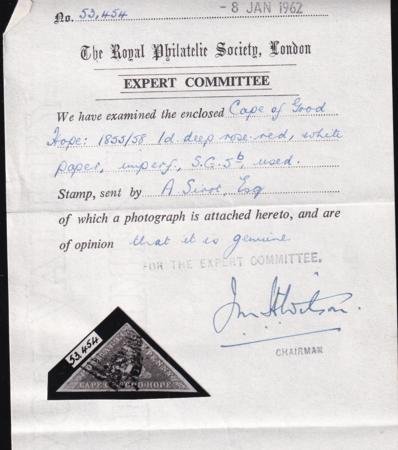 No. 53,454
- 8 JAN 1962
The Royal Philatelic Society, London
EXPERT COMMITTEE
We have examined the enclosed Cape of Good
Hope: 1855/58 1d. deep rose-red, white
paper, imperf, S.G.5b, used.
Stamp, sent by A Esq
of which a photograph is attached hereto, and are
of opinion that it is genuine
FOR THE EXPERT COMMITTEE.
CHAIRMAN
53,454
CAPE OF GOOD HOPE